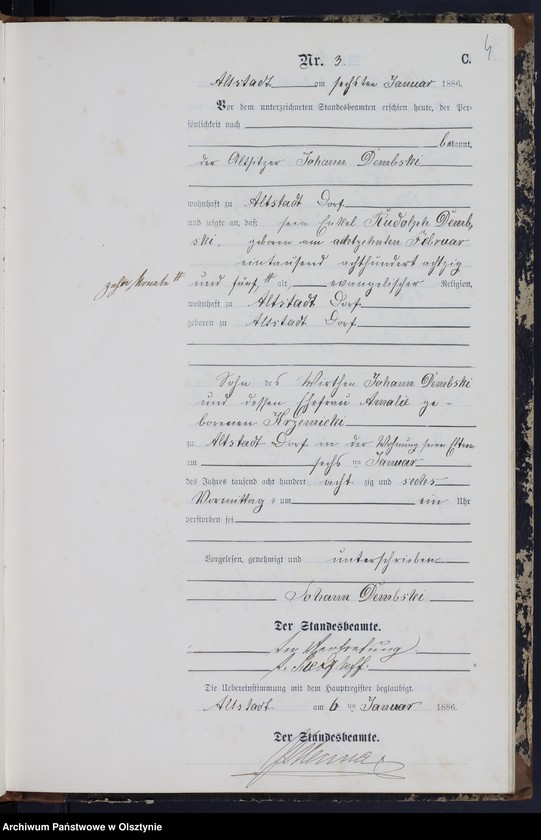 4
Nr. 3. C.
Altstadt am sechsten Januar 1886.
Vor dem unterzeichneten Standesbeamten erschien heute, der Per-
sönlichkeit nach
bekannt,
der Altsitzer Johann Dembski
wohnhaft zu Altstadt Dorf
und zeigte an, daß sein Enkel Rudolph Demb,
ski, geboren am achtzehnten Februar
eintausend achthundert achtzig
zehn Monate #
und fünf, # alt, evangelischer Religion,
wohnhaft zu Altstadt Dorf
geboren zu Altstadt Dorf
Sohn des Wirthen Johann Dembski
und dessen Ehefrau Amalie ge-
borenen Krzemicki
zu Altstadt Dorf in der Wohnung seiner Eltern
am sechs ten Januar
des Jahres tausend acht hundert acht zig und sechs
Vormittags um ein Uhr
verstorben sei
Vorgelesen, genehmigt und unterschrieben
Johann Dembski
Der Standesbeamte.
In Vertretung
Die Uebereinstimmung mit dem Hauptregister beglaubigt.
Altstadt am 6 ten Januar 1886.
Der Standesbeamte.
Archiwum Państwowe w Olsztynie